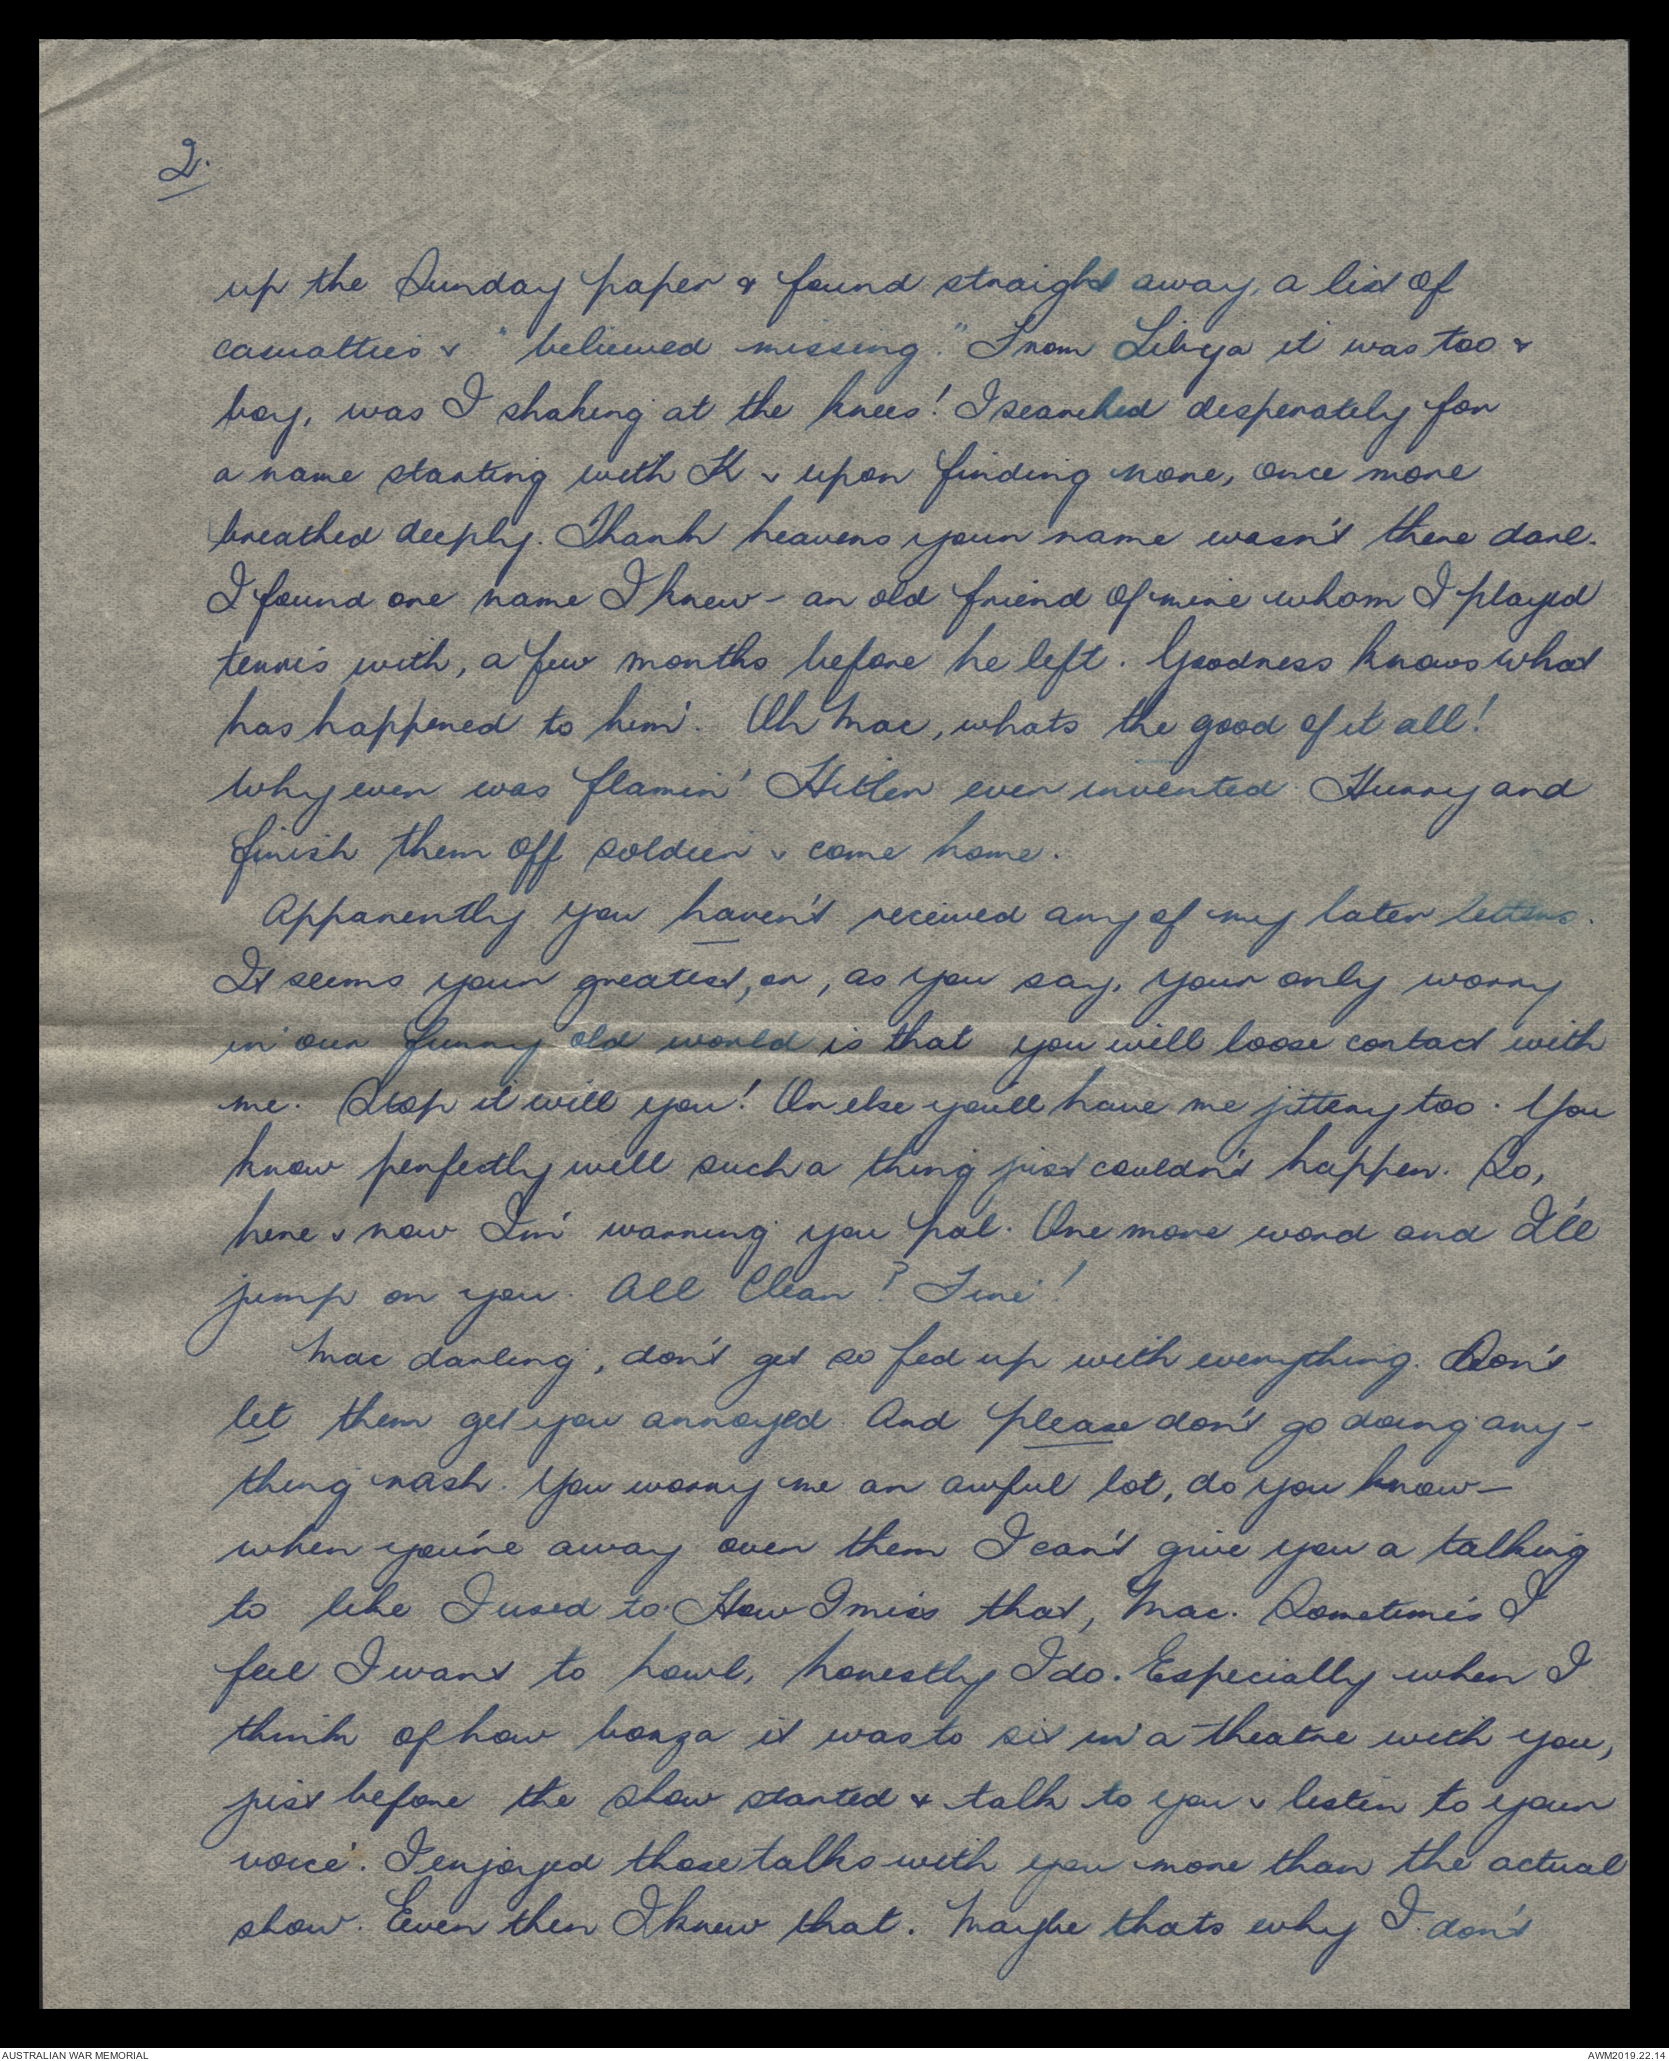 2.
up the Sunday paper & found straight away, a list of
casualties & "believed missing." From Libya it was too &
boy, was I shaking at the knees! I searched desperately for
a name starting with K & upon finding none, once more
breathed deeply. Thank heavens your name wasn't there darl.
I found one name I knew - an old friend of mine whom I played
tennis with, a few months before he left. Goodness knows what
has happened to him. Oh Mac, whats the good of it all!
Why ever was flamin' Hitler ever invented. Hurry and
finish them off soldier & come home.
Apparently you haven't received any of my later letters.
It seems your greatest, or, as you say, your only worry
in our funny old world is that you will loose contact with
me. Stop it will you! Or else you'll have me jittery too. You
know perfectly well such a thing just couldn't happen. So,
here & now I'm warning you pal. One more word and I'll
jump on you. All Clear? Fine!
Mac darling, don't get so fed up with everything. Don't
let them get you annoyed. And please don't go doing any-
thing rash. You worry me an awful lot, do you know -
when you're away over them I can't give you a talking
to like I used to. How I miss that, Mac. Sometimes I
feel I want to howl, honestly I do. Especially when I
think of how bonza it was to sit in a theatre with you,
just before the show started & talk to you & listen to your
voice. I enjoyed those talks with you more than the actual
show. Even then I knew that. Maybe thats why I don't
AUSTRALIAN WAR MEMORIAL
AWM2019.22.14